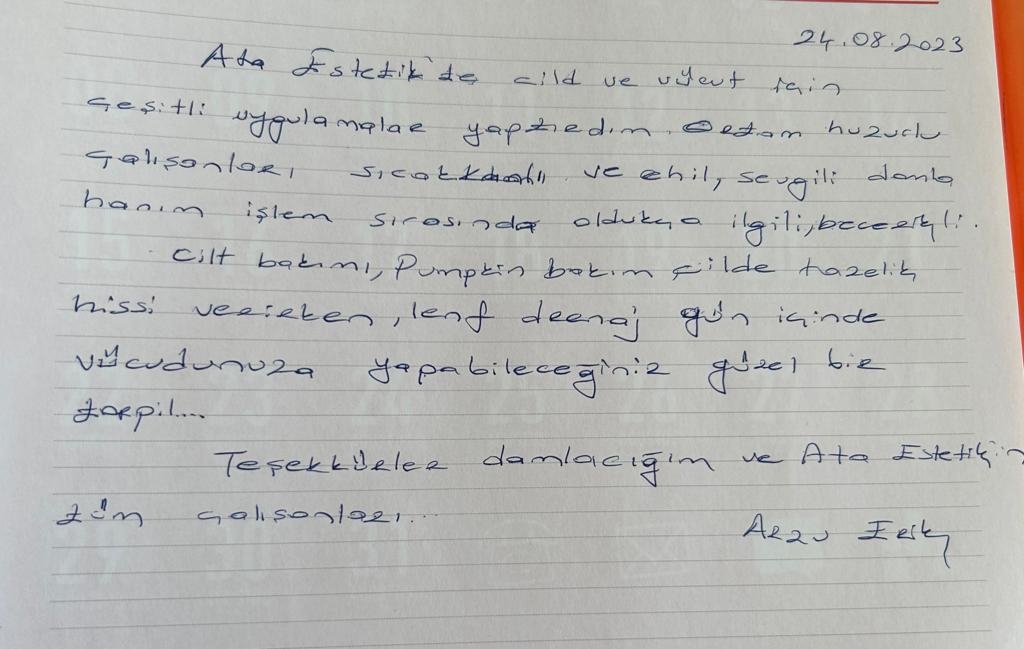 24.08.2023
Ata Estetik'de cild ve vücut için
Çeşitli uygulamalar yaptırdım. Ortam huzurlu
Çalışanları sıcakkanlı ve ehil, sevgili damla
hanım işlem sırasında oldukça ilgili, becerikli.
Cilt bakımı, Pumpkin bakım cilde tazelik
hissi verirken, lenf drenaj gün içinde
vücudunuza yapabileceğiniz güzel bir
torpil....
Teşekkürler damlacığım ve Ata Estetik'in
tüm çalışanları...
Arzu